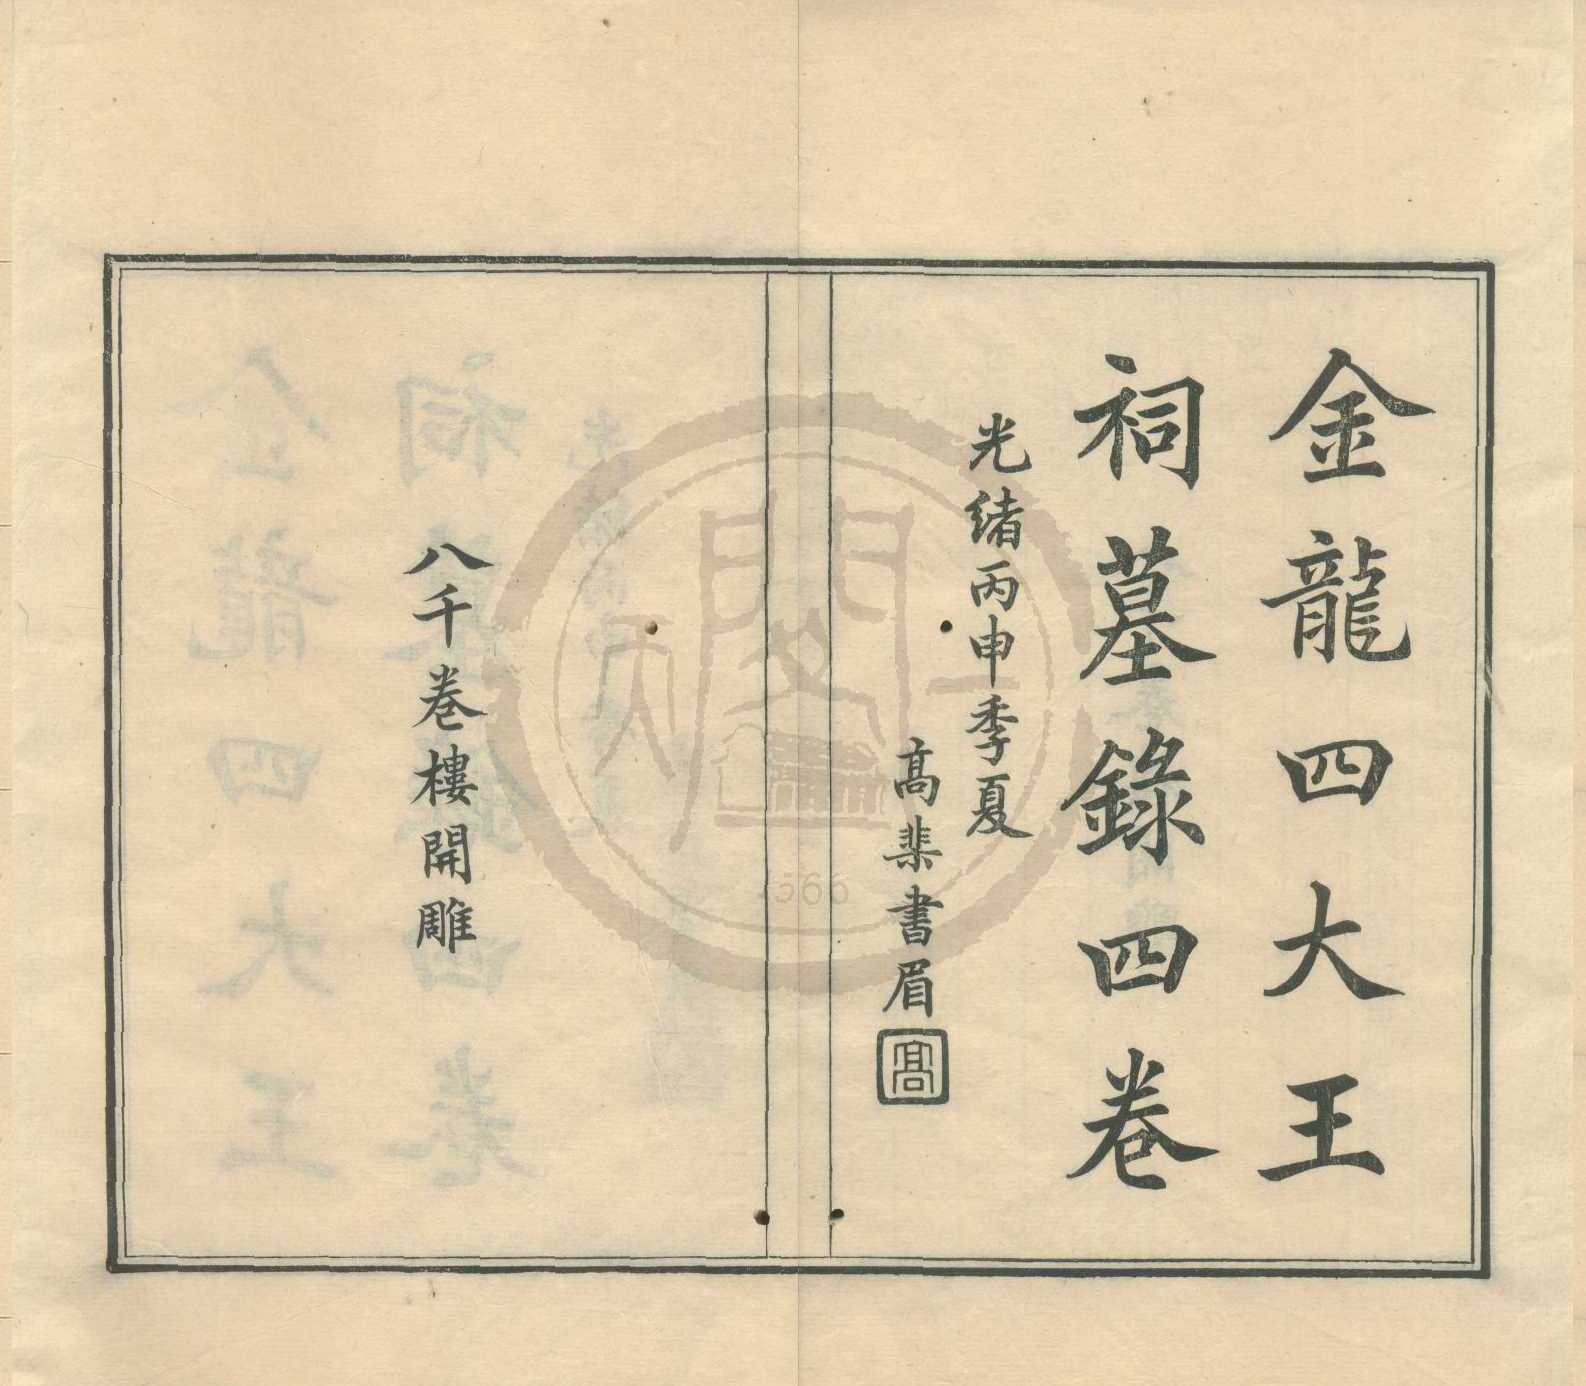 金龍四大王
祠墓錄四卷
光緒丙申季夏
髙棐書眉
高
八千卷樓開雕
天一閣
1566